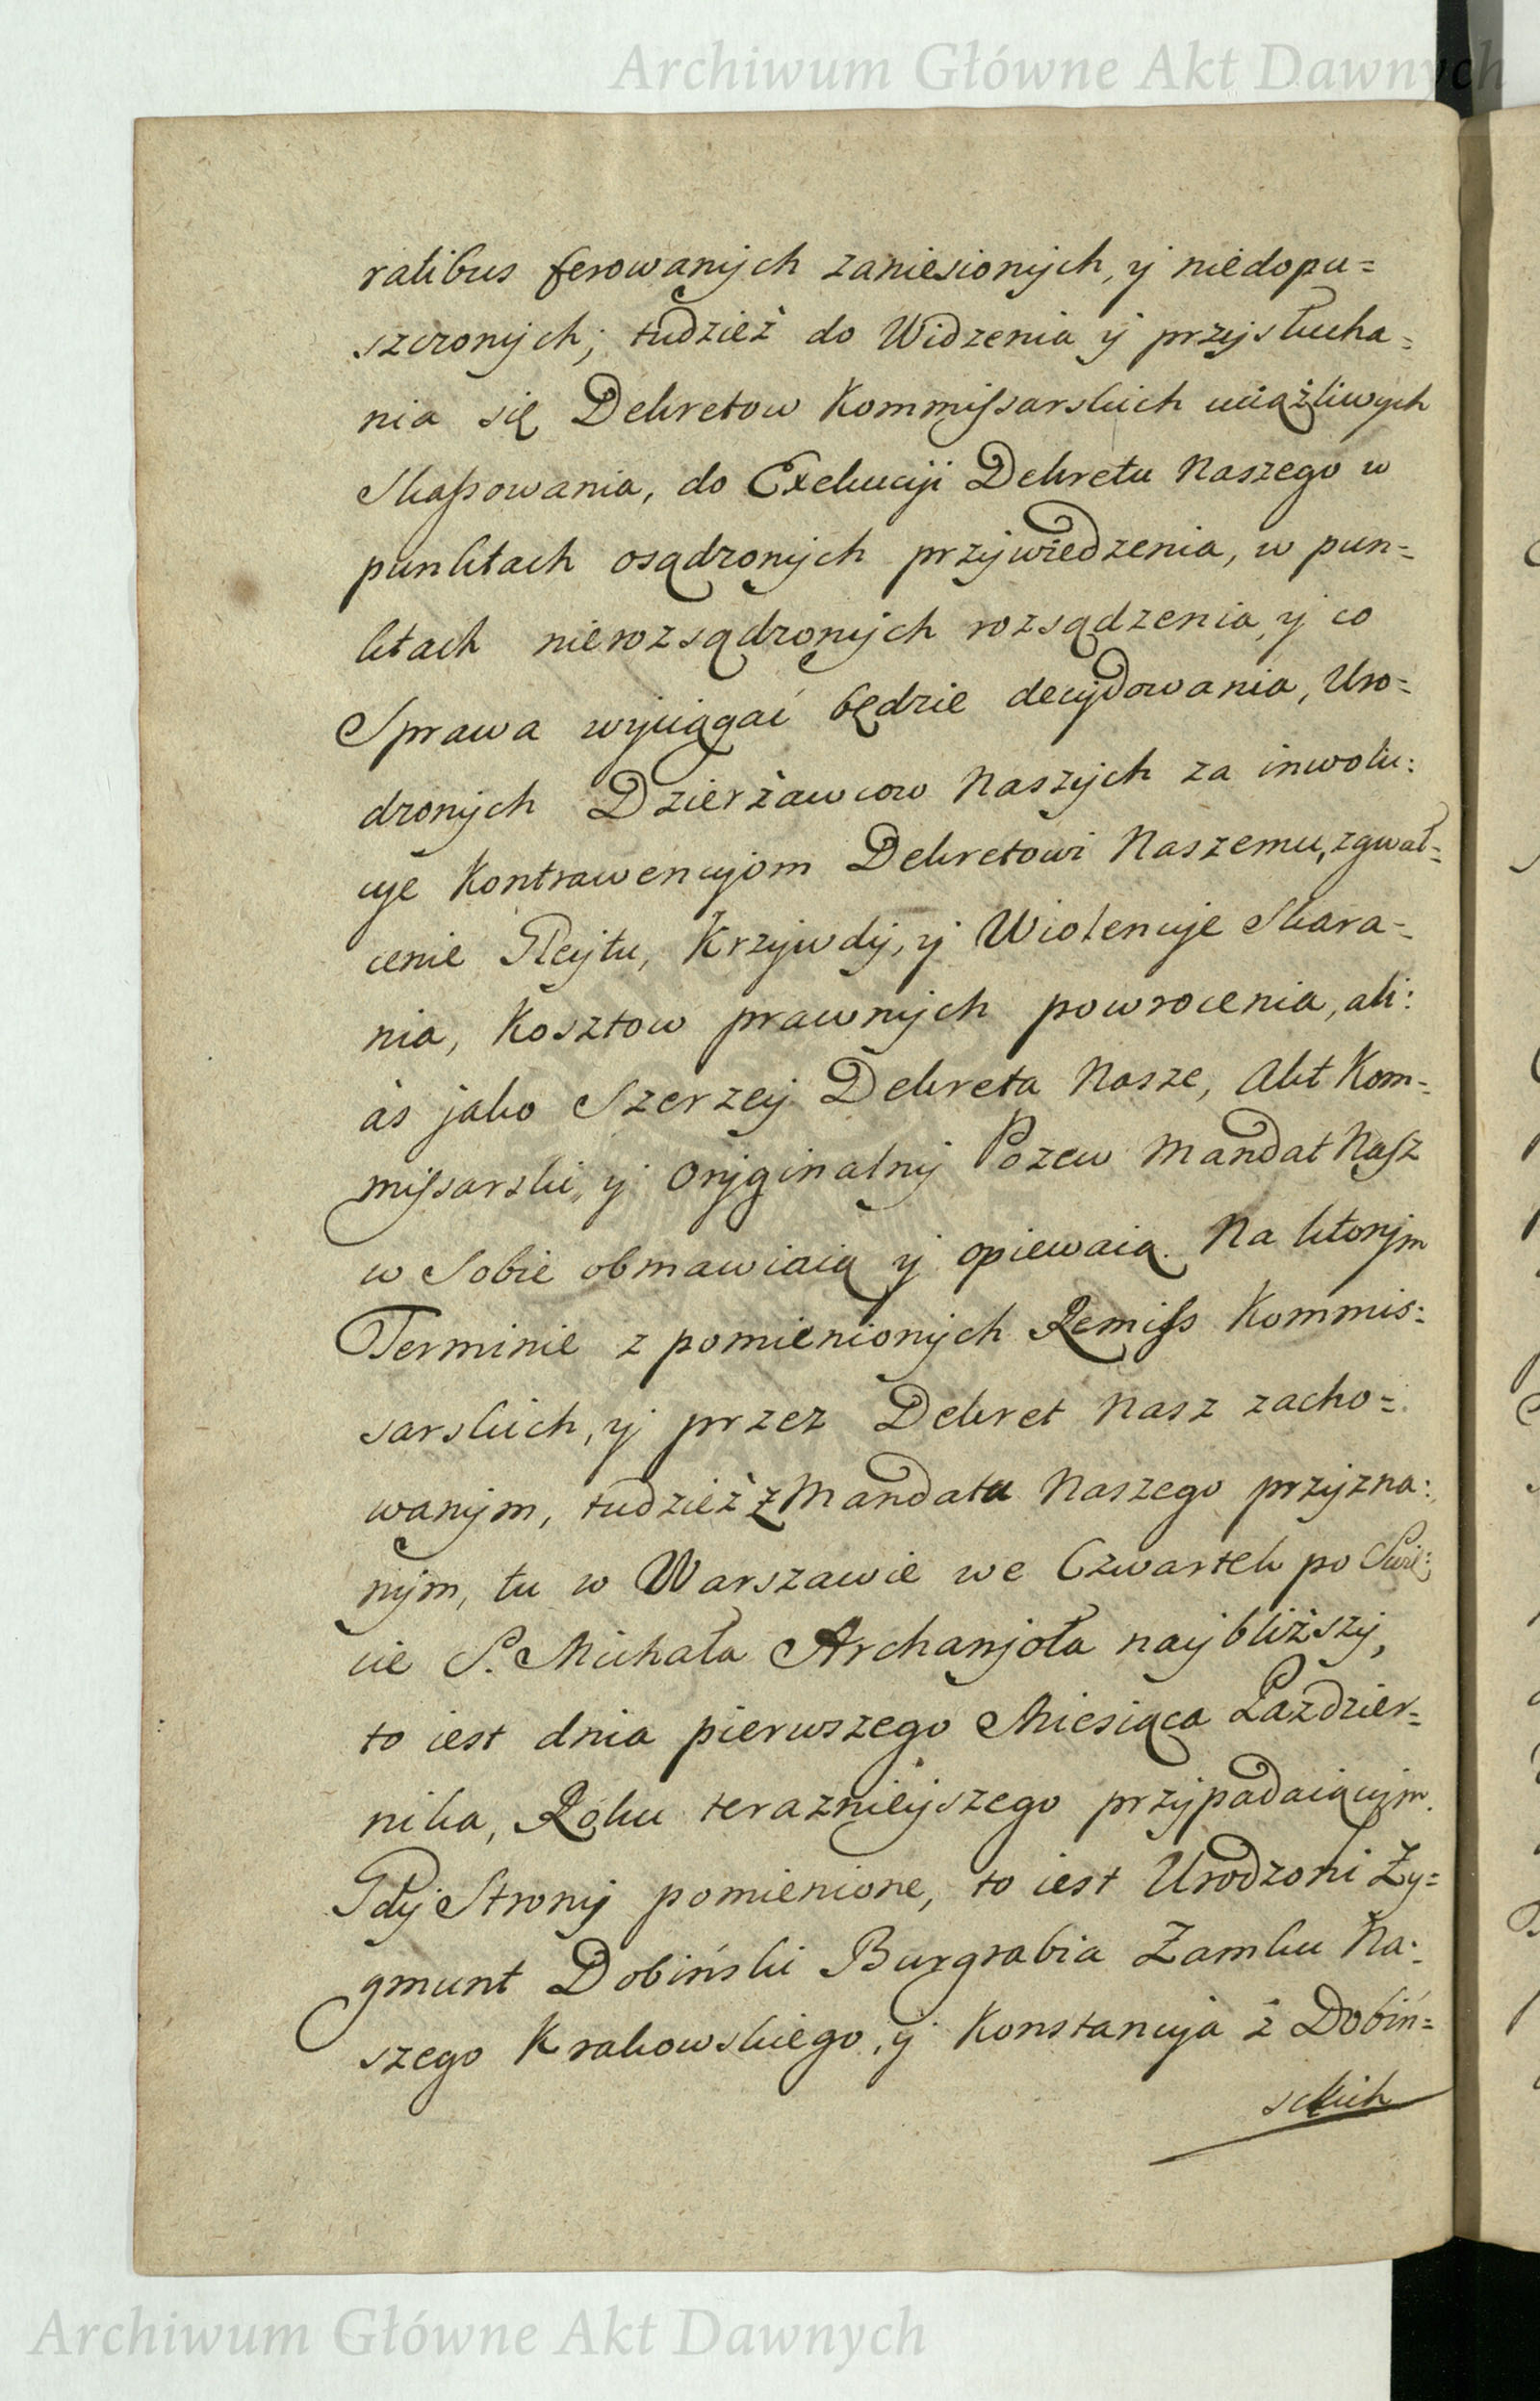 Archiwum Główne Akt Dawnych
ratibus ferowanych zaniesionych, y niedopu=
szczonych; tudzież do Widzenia y przysłucha=
nia się Dekretow Kommissarskich uciążliwych
Skassowania, do Exekucyi Dekretu Naszego w
punktach osądzonych przywiedzenia, w pun=
ktach nierozsądzonych rozsądzenia, y co
Sprawa wyciągać będzie decydowania, Uro=
dzonych Dzierżawcow Naszych za inwolu:
cye Kontrawencyom Dekretowi Naszemu, zgwał=
cenie Gleytu, Krzywdy, y Wiolencye Skara=
nia, Kosztow prawnych powrocenia, ali:
ás jako Szerzey Dekreta Nasze, Akt Kom=
missarski, y Oryginalny Pozew Mandat Nasz
w Sobie obmawiaią y opiewaią. Na ktorym
Terminie z pomienionych Remiss Kommis:
sarskich, y przez Dekret Nasz zacho=
wanym, tudzież z Mandatu Naszego przyzna:
nym, tu w Warszawie we Czwartek po Swię:
cie S. Michała Archanioła naybliższy,
to iest dnia pierwszego Miesiąca Paździer=
nika, Roku terazneyszego przypadaiącym.
Gdy Strony pomienione, to iest Urodzoni Zy=
gmunt Dobiński Burgrabia Zamku Na:
szego Krakowskiego, y Konstancya z Dobiń=
skich
Archiwum Główne Akt Dawnych